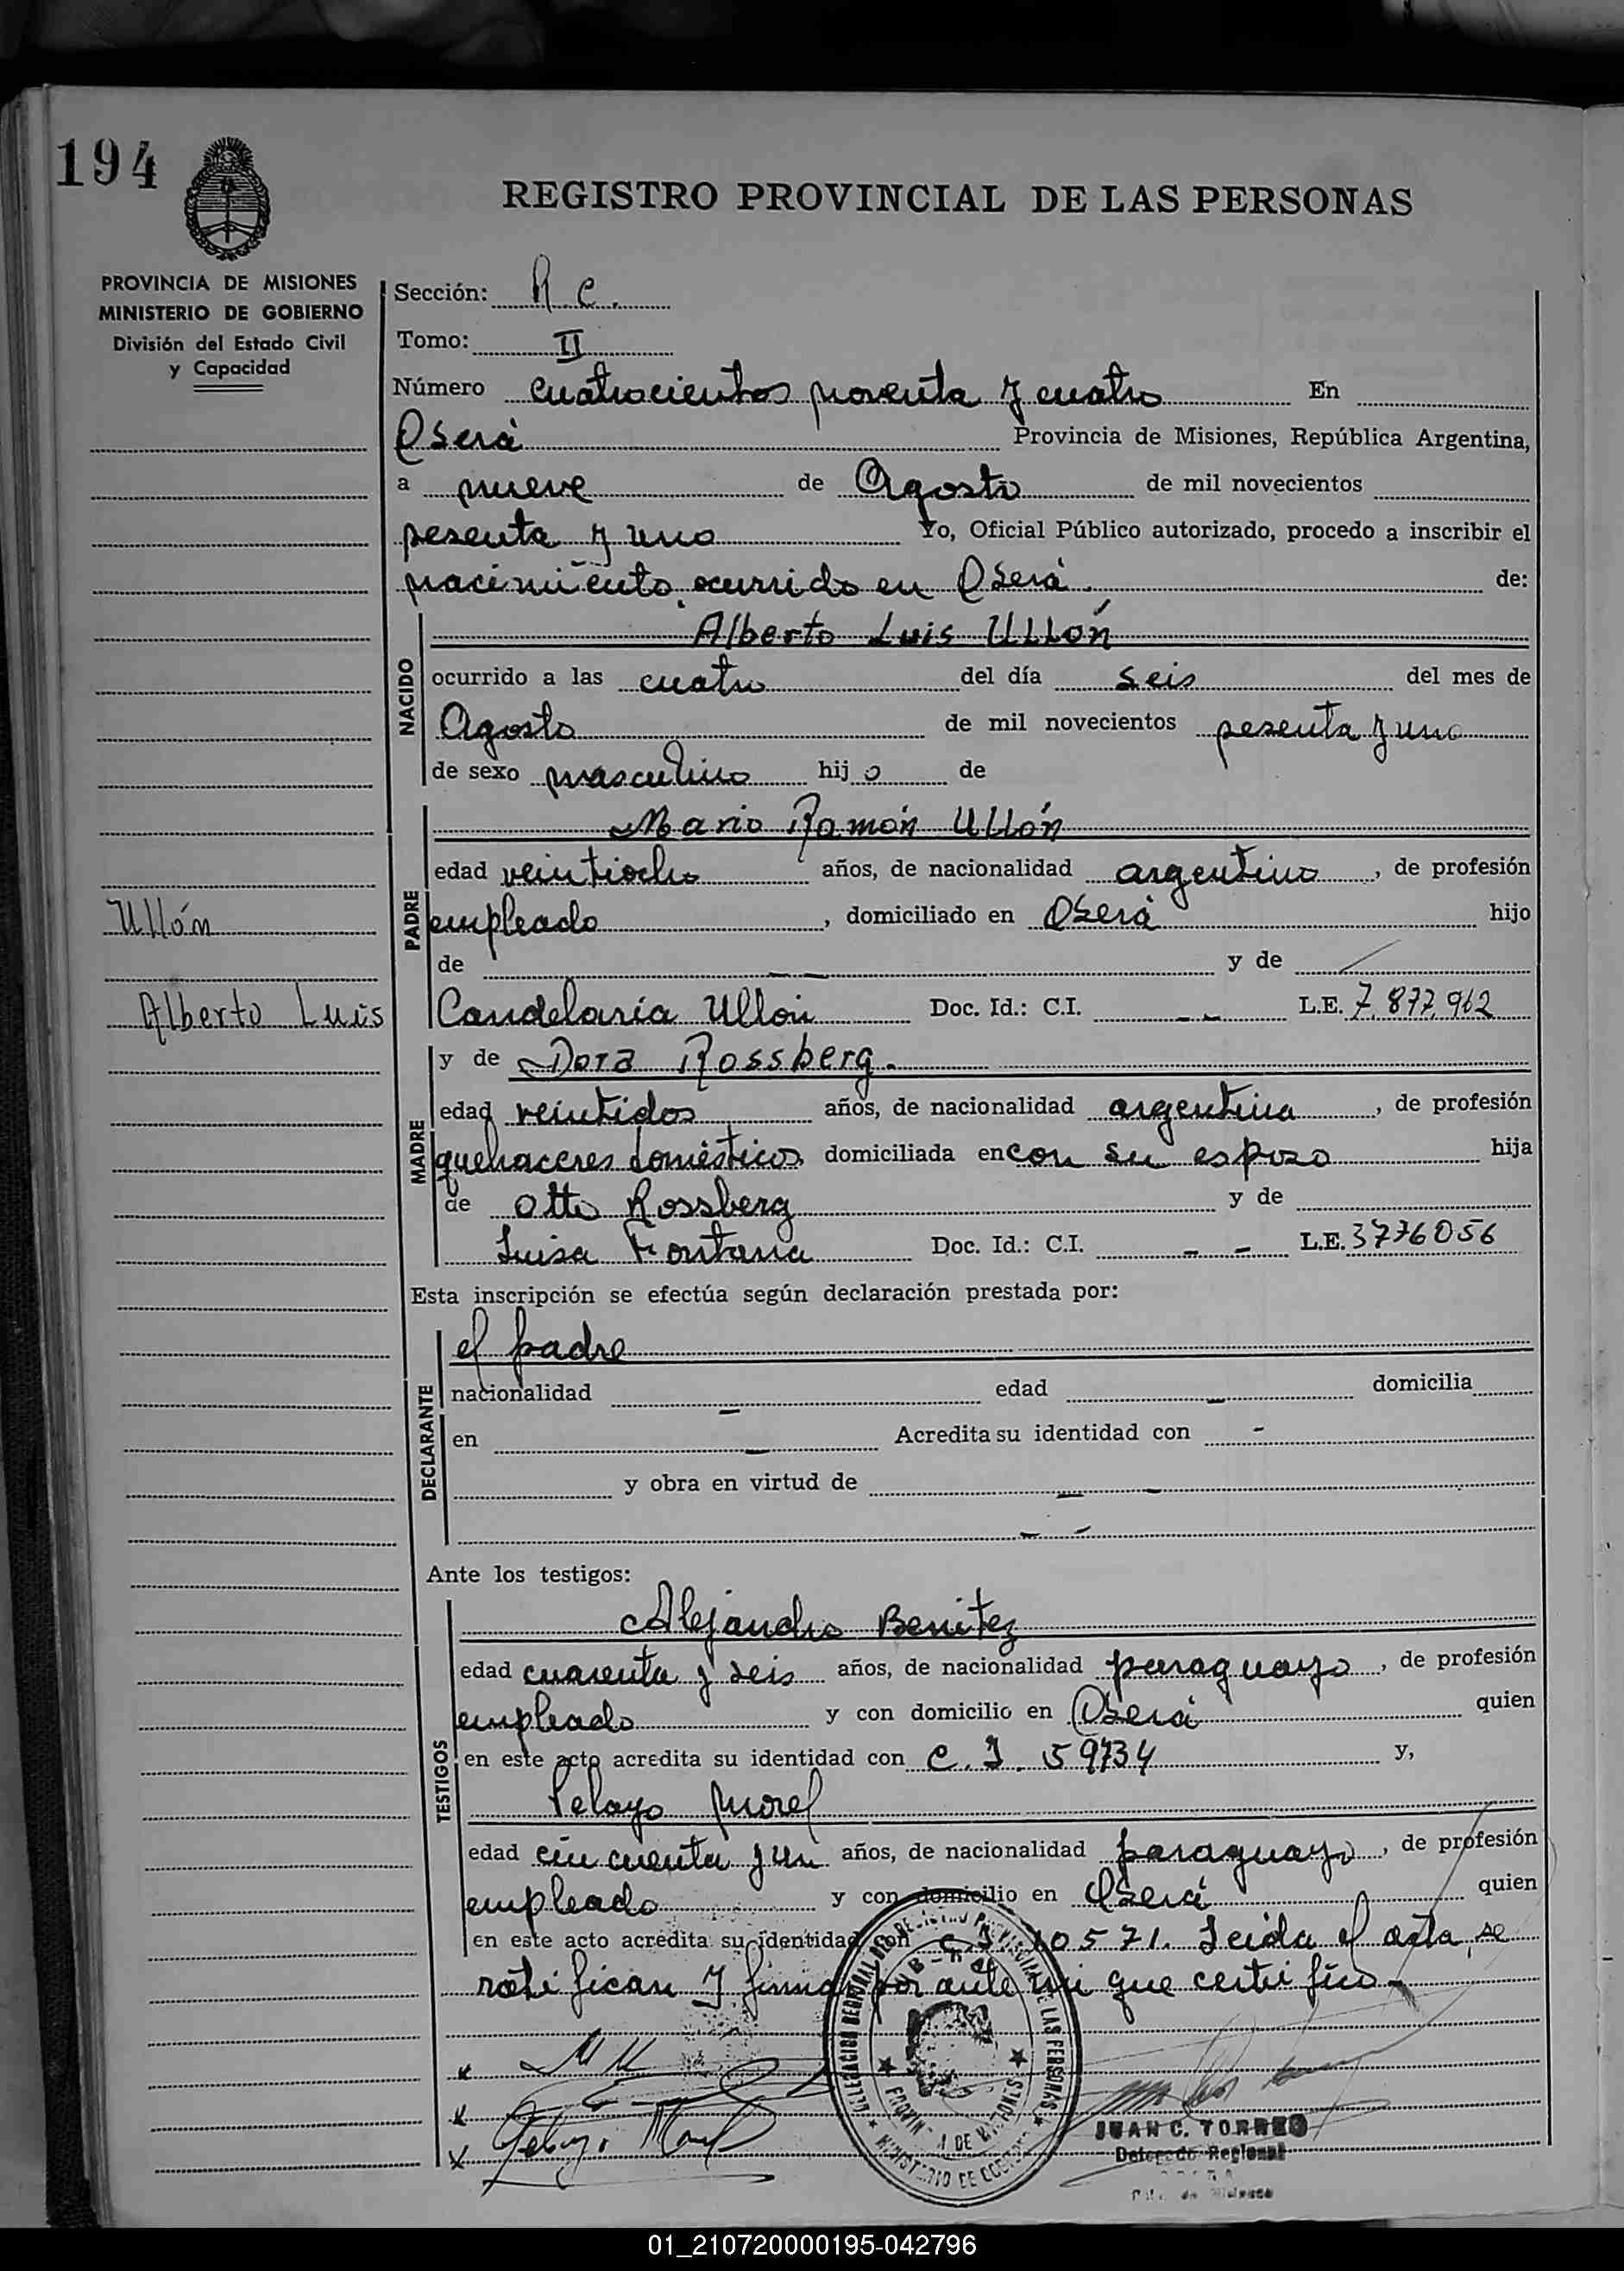 194
REGISTRO PROVINCIAL DE LAS PERSONAS
PROVINCIA DE MISIONES
MINISTERIO DE GOBIERNO
División del Estado Civil
y Capacidad
Sección: R C.
Tomo: II
Número cuatrocientos noventa y cuatro En
Oberá Provincia de Misiones, República Argentina,
a nueve de Agosto de mil novecientos
sesenta y uno Yo, Oficial Público autorizado, procedo a inscribir el
nacimiento ocurrido en Oberá. de:
NACIDO
Alberto Luis Ullón
ocurrido a las cuatro del día seis del mes de
Agosto de mil novecientos sesenta y uno
de sexo masculino hijo de
PADRE
Mario Ramón Ullón
edad veintiocho años, de nacionalidad argentino, de profesión
empleado, domiciliado en Oberá hijo
de — — y de /
Candelaria Ullón Doc. Id.: C.I. - - L.E. 7.877.962
Ullón
Alberto Luis
MADRE
y de Dora Rossberg.
edad veintidos años, de nacionalidad argentina, de profesión
quehaceres domésticos domiciliada en con su esposo hija
de Otto Rossberg y de
Luisa Fontana Doc. Id.: C.I. - - L.E. 3776056
Esta inscripción se efectúa según declaración prestada por:
DECLARANTE
el padre
nacionalidad - edad - domicilia
en - Acredita su identidad con -
y obra en virtud de - -
- -
Ante los testigos:
TESTIGOS
Alejandro Benitez
edad cuarenta y seis años, de nacionalidad paraguayo, de profesión
empleado y con domicilio en Oberá quien
en este acto acredita su identidad con C.I. 59734 y,
Pelayo Morel
edad cincuenta y un años, de nacionalidad paraguayo, de profesión
empleado y con domicilio en Oberá quien
en este acto acredita su identidad con C.I. 10571. Leida el acta, se
ratifican y firman por ante mi que certifico.
DELEGACION REGIONAL DEL REGISTRO PROVINCIAL DE LAS PERSONAS
PROVINCIA DE MISIONES
MINISTERIO DE GOBIERNO
Pelayo Morel
JUAN C. TORRES
Delegado Regional
01_210720000195-042796